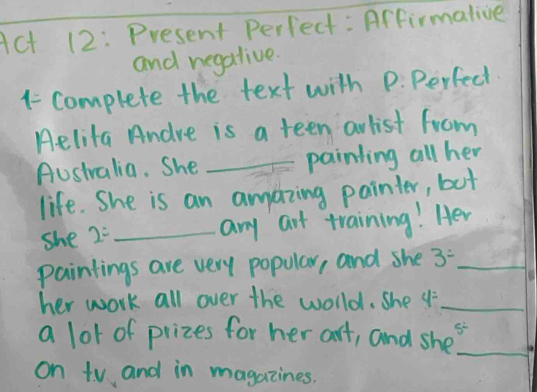 Act 12: Present Perfect: Affirmative
and negative.
1= Complete the text with P. Perfect.
Aelita Andre is a teen artist from
Australia. She ______ painting all her
life. She is an amazing painter, but
she 2= ______ any art training! Her
paintings are very popular, and she 3= ______
her work all over the world. She 4= ______
a lot of prizes for her art, and she 5= ______
on t.v. and in magazines.